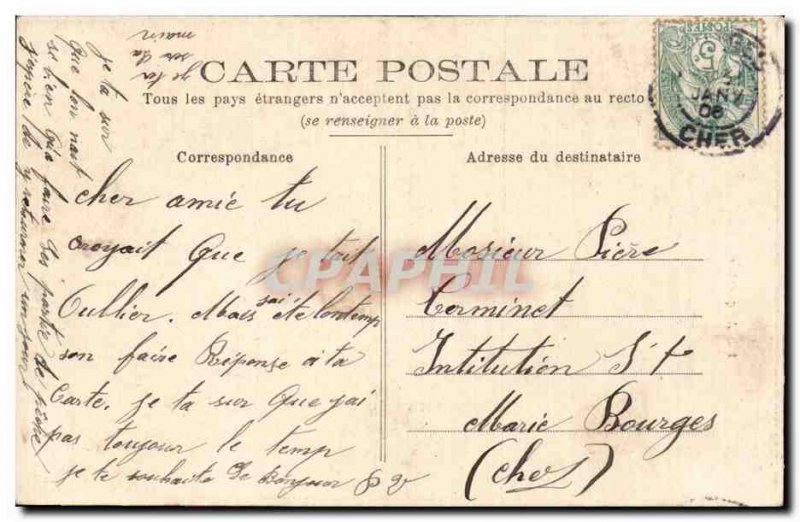 CARTE POSTALE
Tous les pays étrangers n'acceptent pas la correspondance au recto
(se renseigner à la poste)
POSTES
5
JANV
06
CHER
Correspondance
cher amie tu
croyait que je tait
Oullier. Mais sai été lontemp
son faire Réponse a ta
Carte. je ta sur que jai
pas toujour le temp
je te souhaite le Bonjour
je ta sur
que lon nait
se bien qua faire des partie de pêche
j'epère de y retourner un jour
je te
ser la
main
Adresse du destinataire
Mosieur Pière
Terminet
Intitution St
Marie Bourges
(Cher)
CPAPHIL